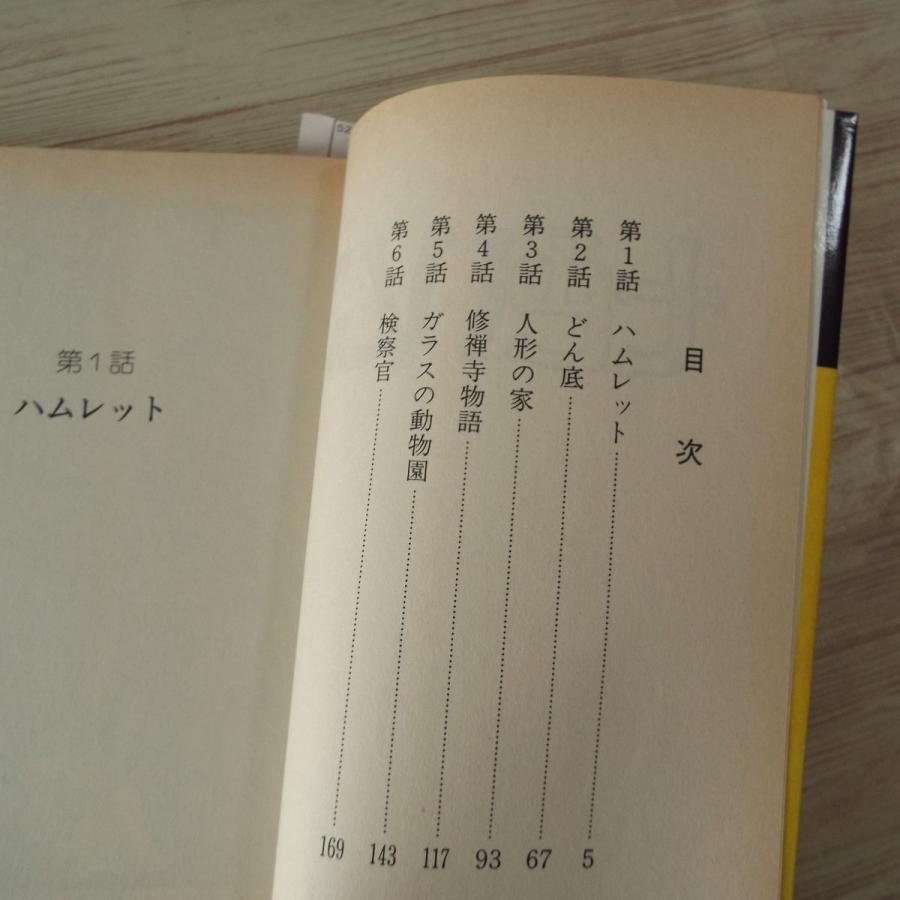 目次
第1話 ハムレット 5
第2話 どん底 67
第3話 人形の家 93
第4話 修禅寺物語 117
第5話 ガラスの動物園 143
第6話 検察官 169
第1話
ハムレット
52